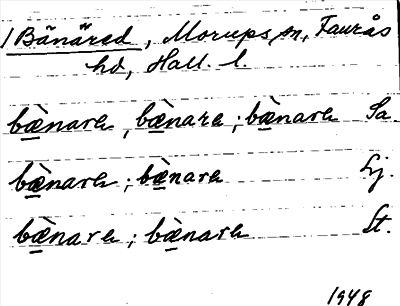 / Bänäred, Morups sn, Faurås
hd, Hall. l.
bæ̀nare, bæ̀nare; bæ̀nare Sa.
bæ̀nare; bæ̀nare Lj.
bæ̀nare; bæ̀nare St.
1948